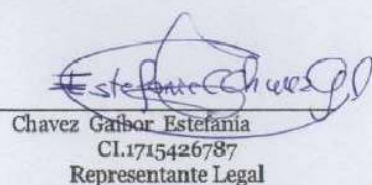 Estefania Chavez G
Chavez Gaibor Estefanía
CI.1715426787
Representante Legal